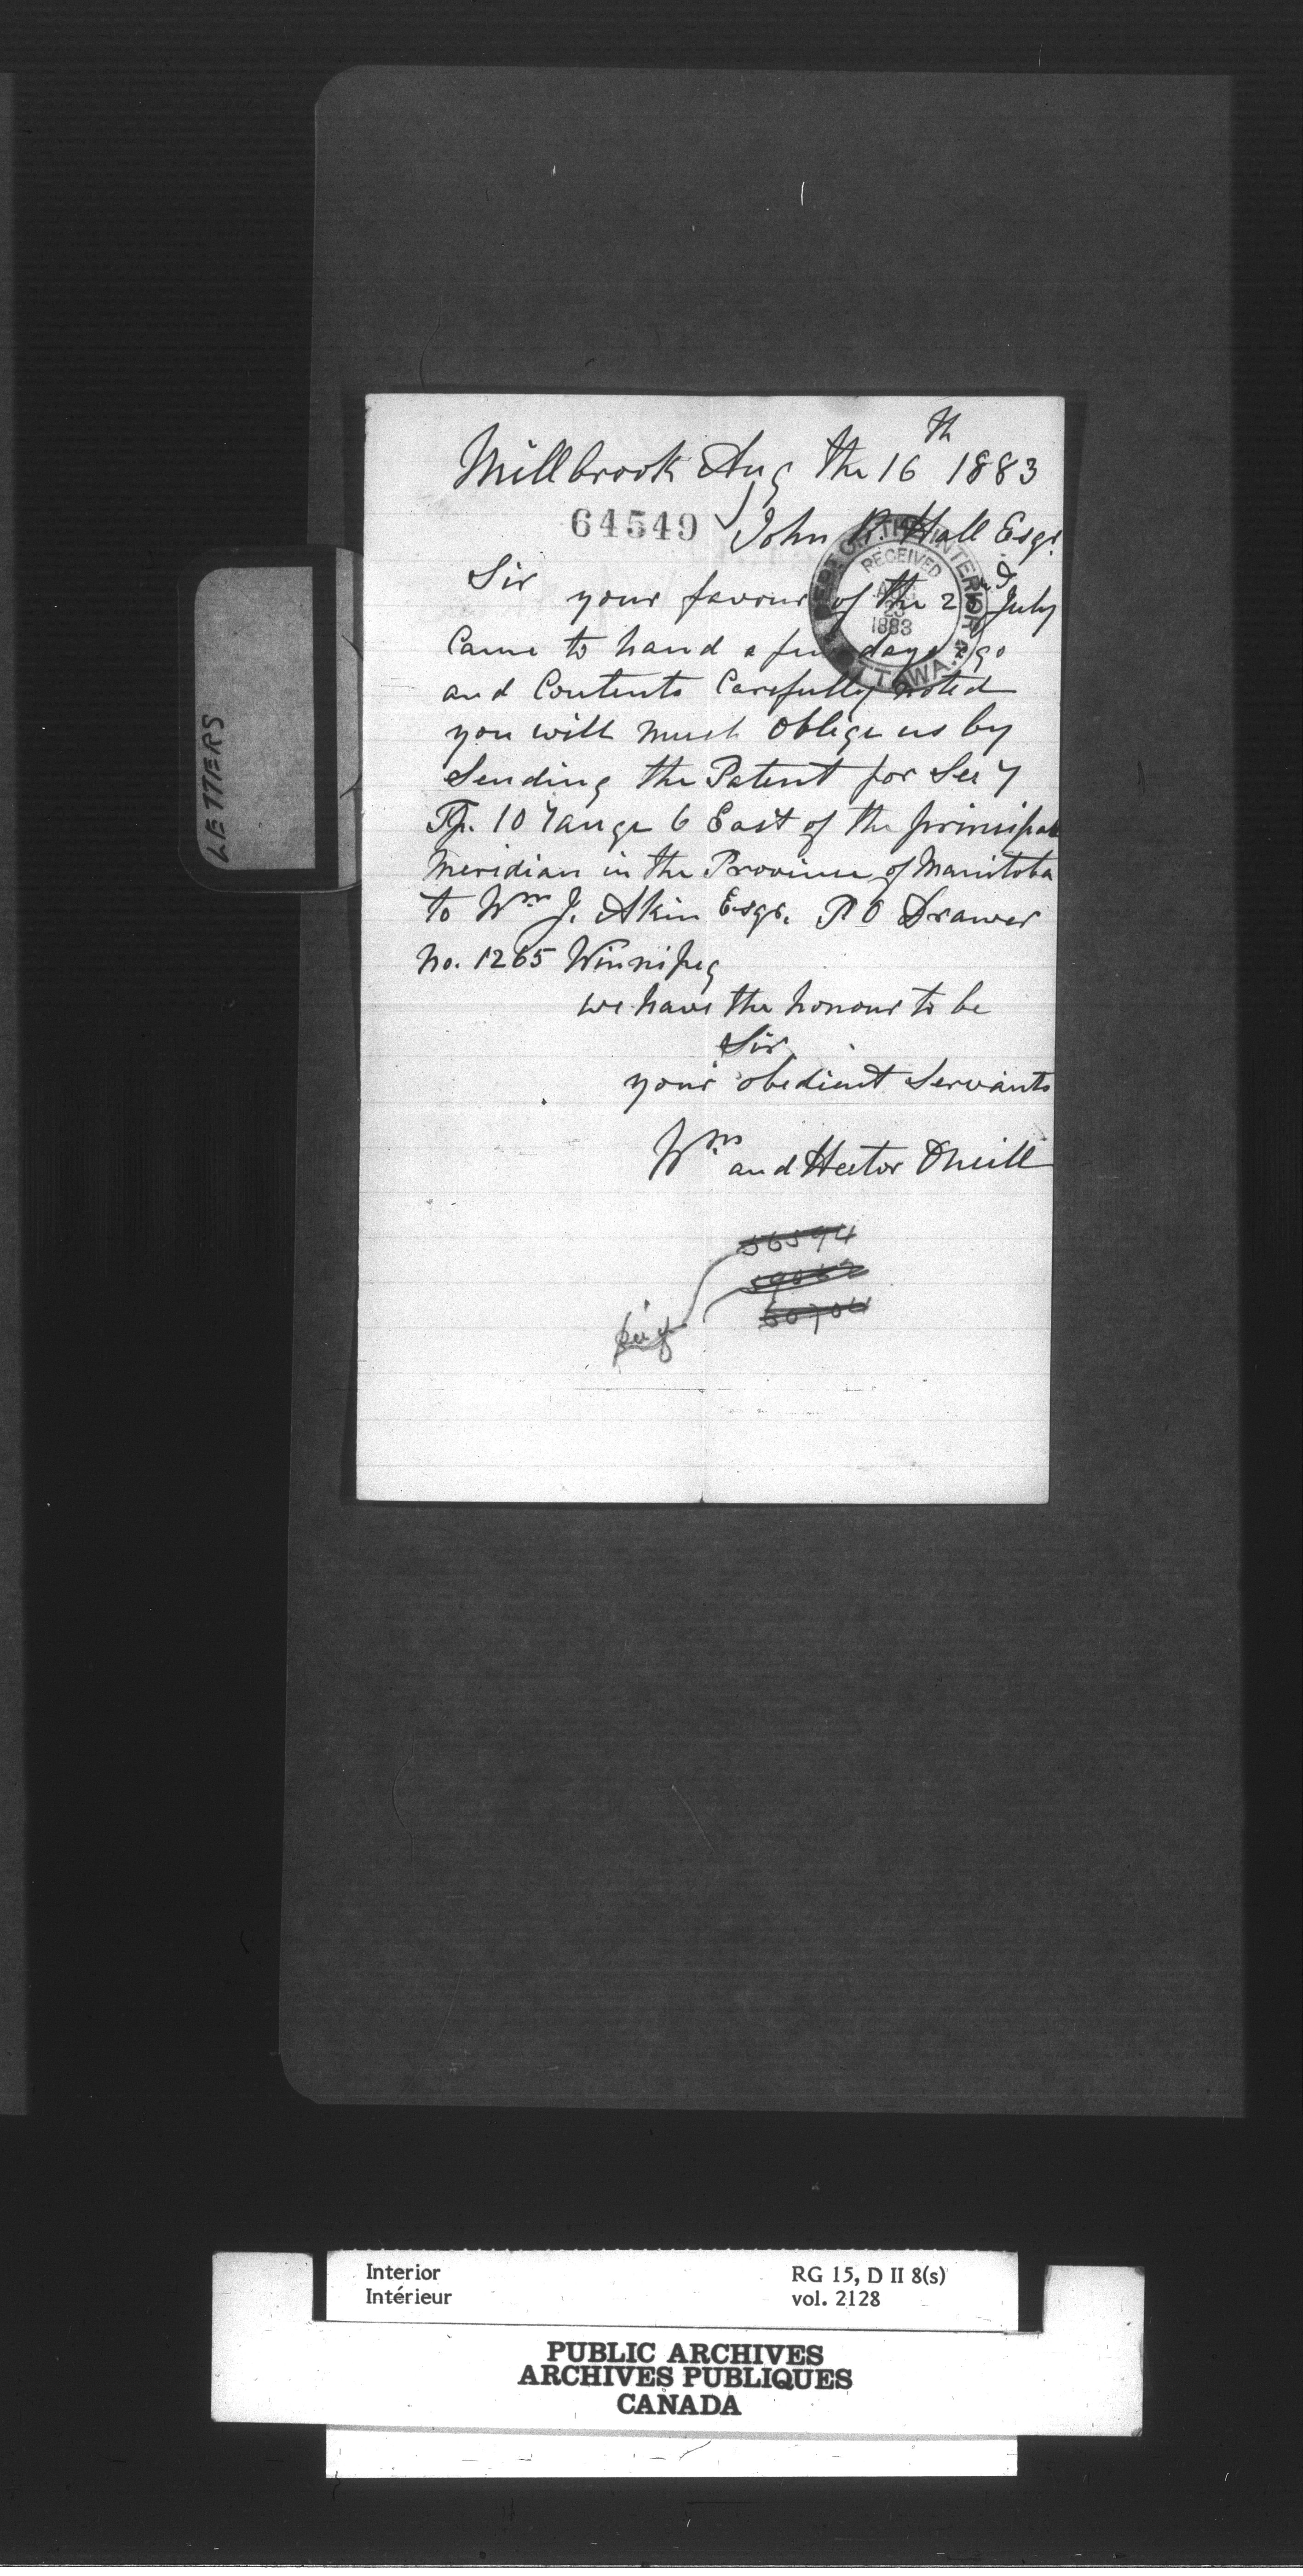 Millbrook Aug the 16th 1883
64549
John R. Hall Esqr.
DEPT. OF THE INTERIOR
RECEIVED
AUG
23
1883
OTTAWA.
Sir
your favour of the 2 July
Came to hand a few days ago
and Contents Carefully noted
you will much oblige us by
Sending the Patent for Sec 7
Tp. 10 range 6 East of the principal
Meridian in the Province of Manitoba
to Wm J. Akin Esqr. P O Drawer
No. 1265 Winnipeg
we have the honour to be
Sir
your obedient Servants
Wm and Hector Oneill
56594
59062
60704
LETTERS
Interior
Intérieur
RG 15, D II 8(s)
vol. 2128
PUBLIC ARCHIVES
ARCHIVES PUBLIQUES
CANADA